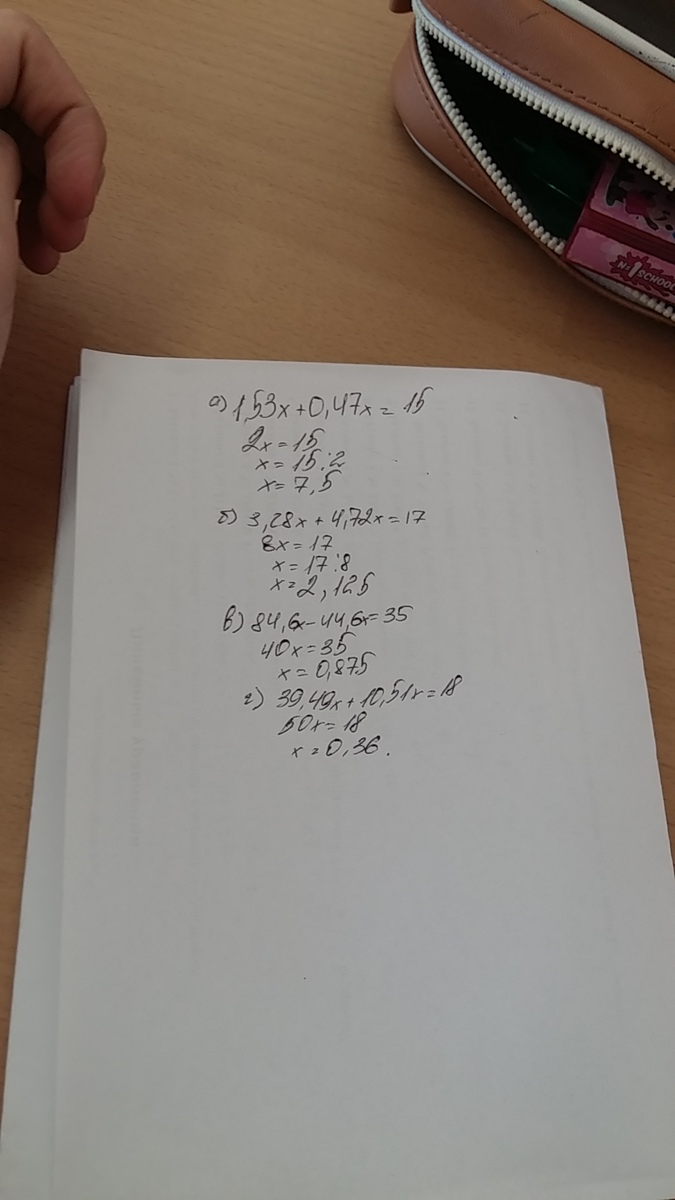 №1 SCHOOL
а) 1,53x + 0,47x = 15
2x = 15
x = 15:2
x = 7,5
б) 3,28x + 4,72x = 17
8x = 17
x = 17:8
x = 2,125
в) 84,6x - 44,6x = 35
40x = 35
x = 0,875
г) 39,49x + 10,51x = 18
50x = 18
x = 0,36.